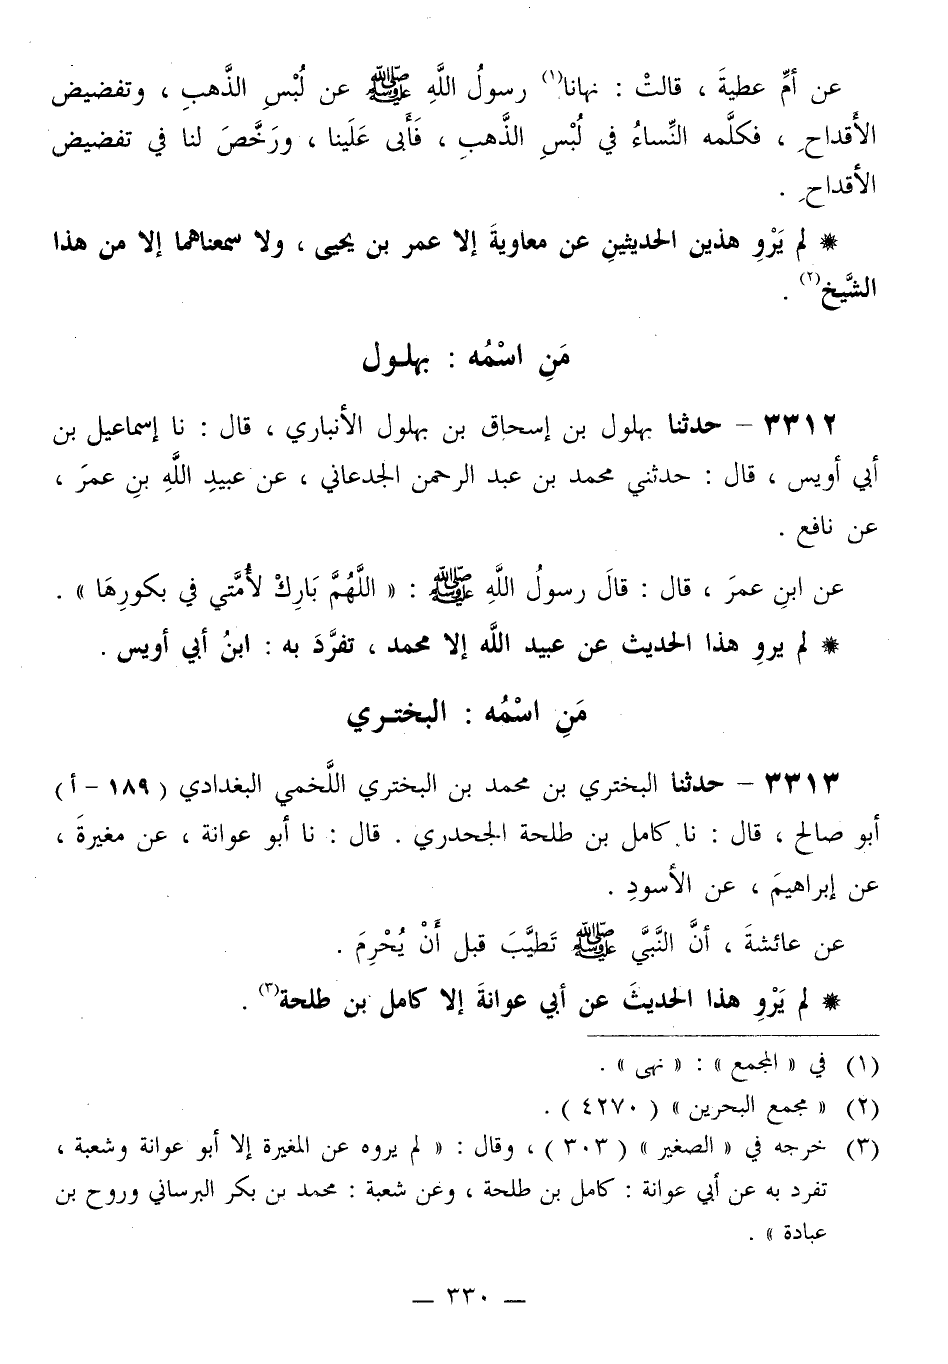 عن أمِّ عطيةَ ، قالتْ : نهانا(١) رسولُ اللَّهِ ﷺ عن لُبْسِ الذَّهبِ ، وتفضيض
الأَقداحِ ، فكلَّمه النِّساءُ في لُبْسِ الذَّهبِ ، فَأَبى عَلَينا ، ورَخَّصَ لنا في تفضيض
الأقداحِ .
* لم يَرْوِ هذين الحديثينِ عن معاويةَ إلا عمر بن يحيى ، ولا سمعناهما إلا من هذا
الشَّيخ(٢) .
مَنِ اسْمُه : بهلـول
٣٣١٢ – حدثنا بهلول بن إسحاق بن بهلول الأنباري ، قال : نا إسماعيل بن
أبي أويس ، قال : حدثني محمد بن عبد الرحمن الجدعاني ، عن عبيدِ اللَّهِ بنِ عمرَ ،
عن نافع .
عن ابنِ عمرَ ، قال : قالَ رسولُ اللَّهِ ﷺ : « اللَّهُمَّ بَارِكْ لأُمَّتي في بكورِهَا » .
* لم يروِ هذا الحديث عن عبيد اللَّه إلا محمد ، تفرَّدَ به : ابنُ أبي أويس .
مَنِ اسْمُه : البختـري
٣٣١٣ – حدثنا البختري بن محمد بن البختري اللَّخمي البغدادي ( ١٨٩ – أ )
أبو صالح ، قال : نا كامل بن طلحة الجحدري . قال : نا أبو عوانة ، عن مغيرةَ ،
عن إبراهيمَ ، عن الأسودِ .
عن عائشةَ ، أنَّ النَّبيَّ ﷺ تَطيَّبَ قبل أَنْ يُحْرِمَ .
* لم يَرْوِ هذا الحديثَ عن أبي عوانةَ إلا كامل بن طلحة(٣) .
(١) في « المجمع » : « نهى » .
(٢) « مجمع البحرين » ( ٤٢٧٠ ) .
(٣) خرجه في « الصغير » ( ٣٠٣ ) ، وقال : « لم يروه عن المغيرة إلا أبو عوانة وشعبة ،
تفرد به عن أبي عوانة : كامل بن طلحة ، وعن شعبة : محمد بن بكر البرساني وروح بن
عبادة » .
— ٣٣٠ —